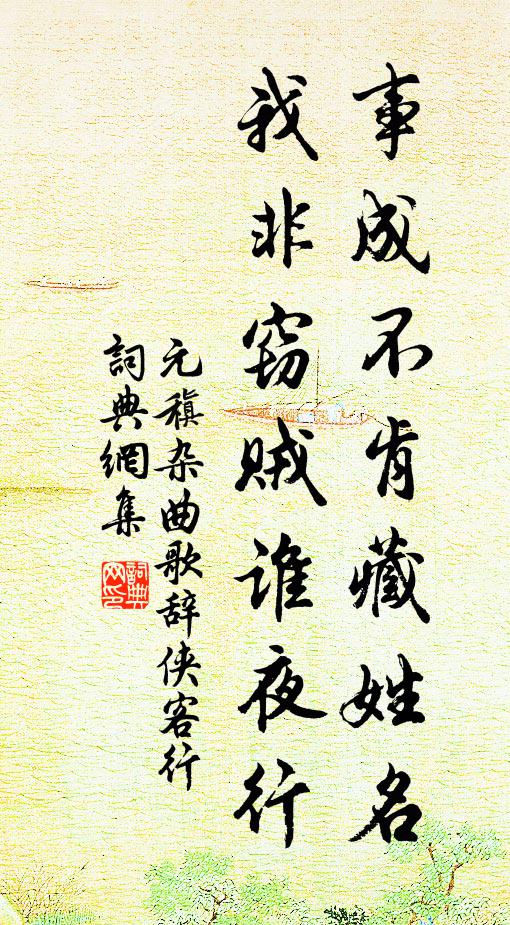 事成不肯藏姓名
我非窃贼谁夜行
元稹杂曲歌辞侠客行
詞典網集
詞典网印